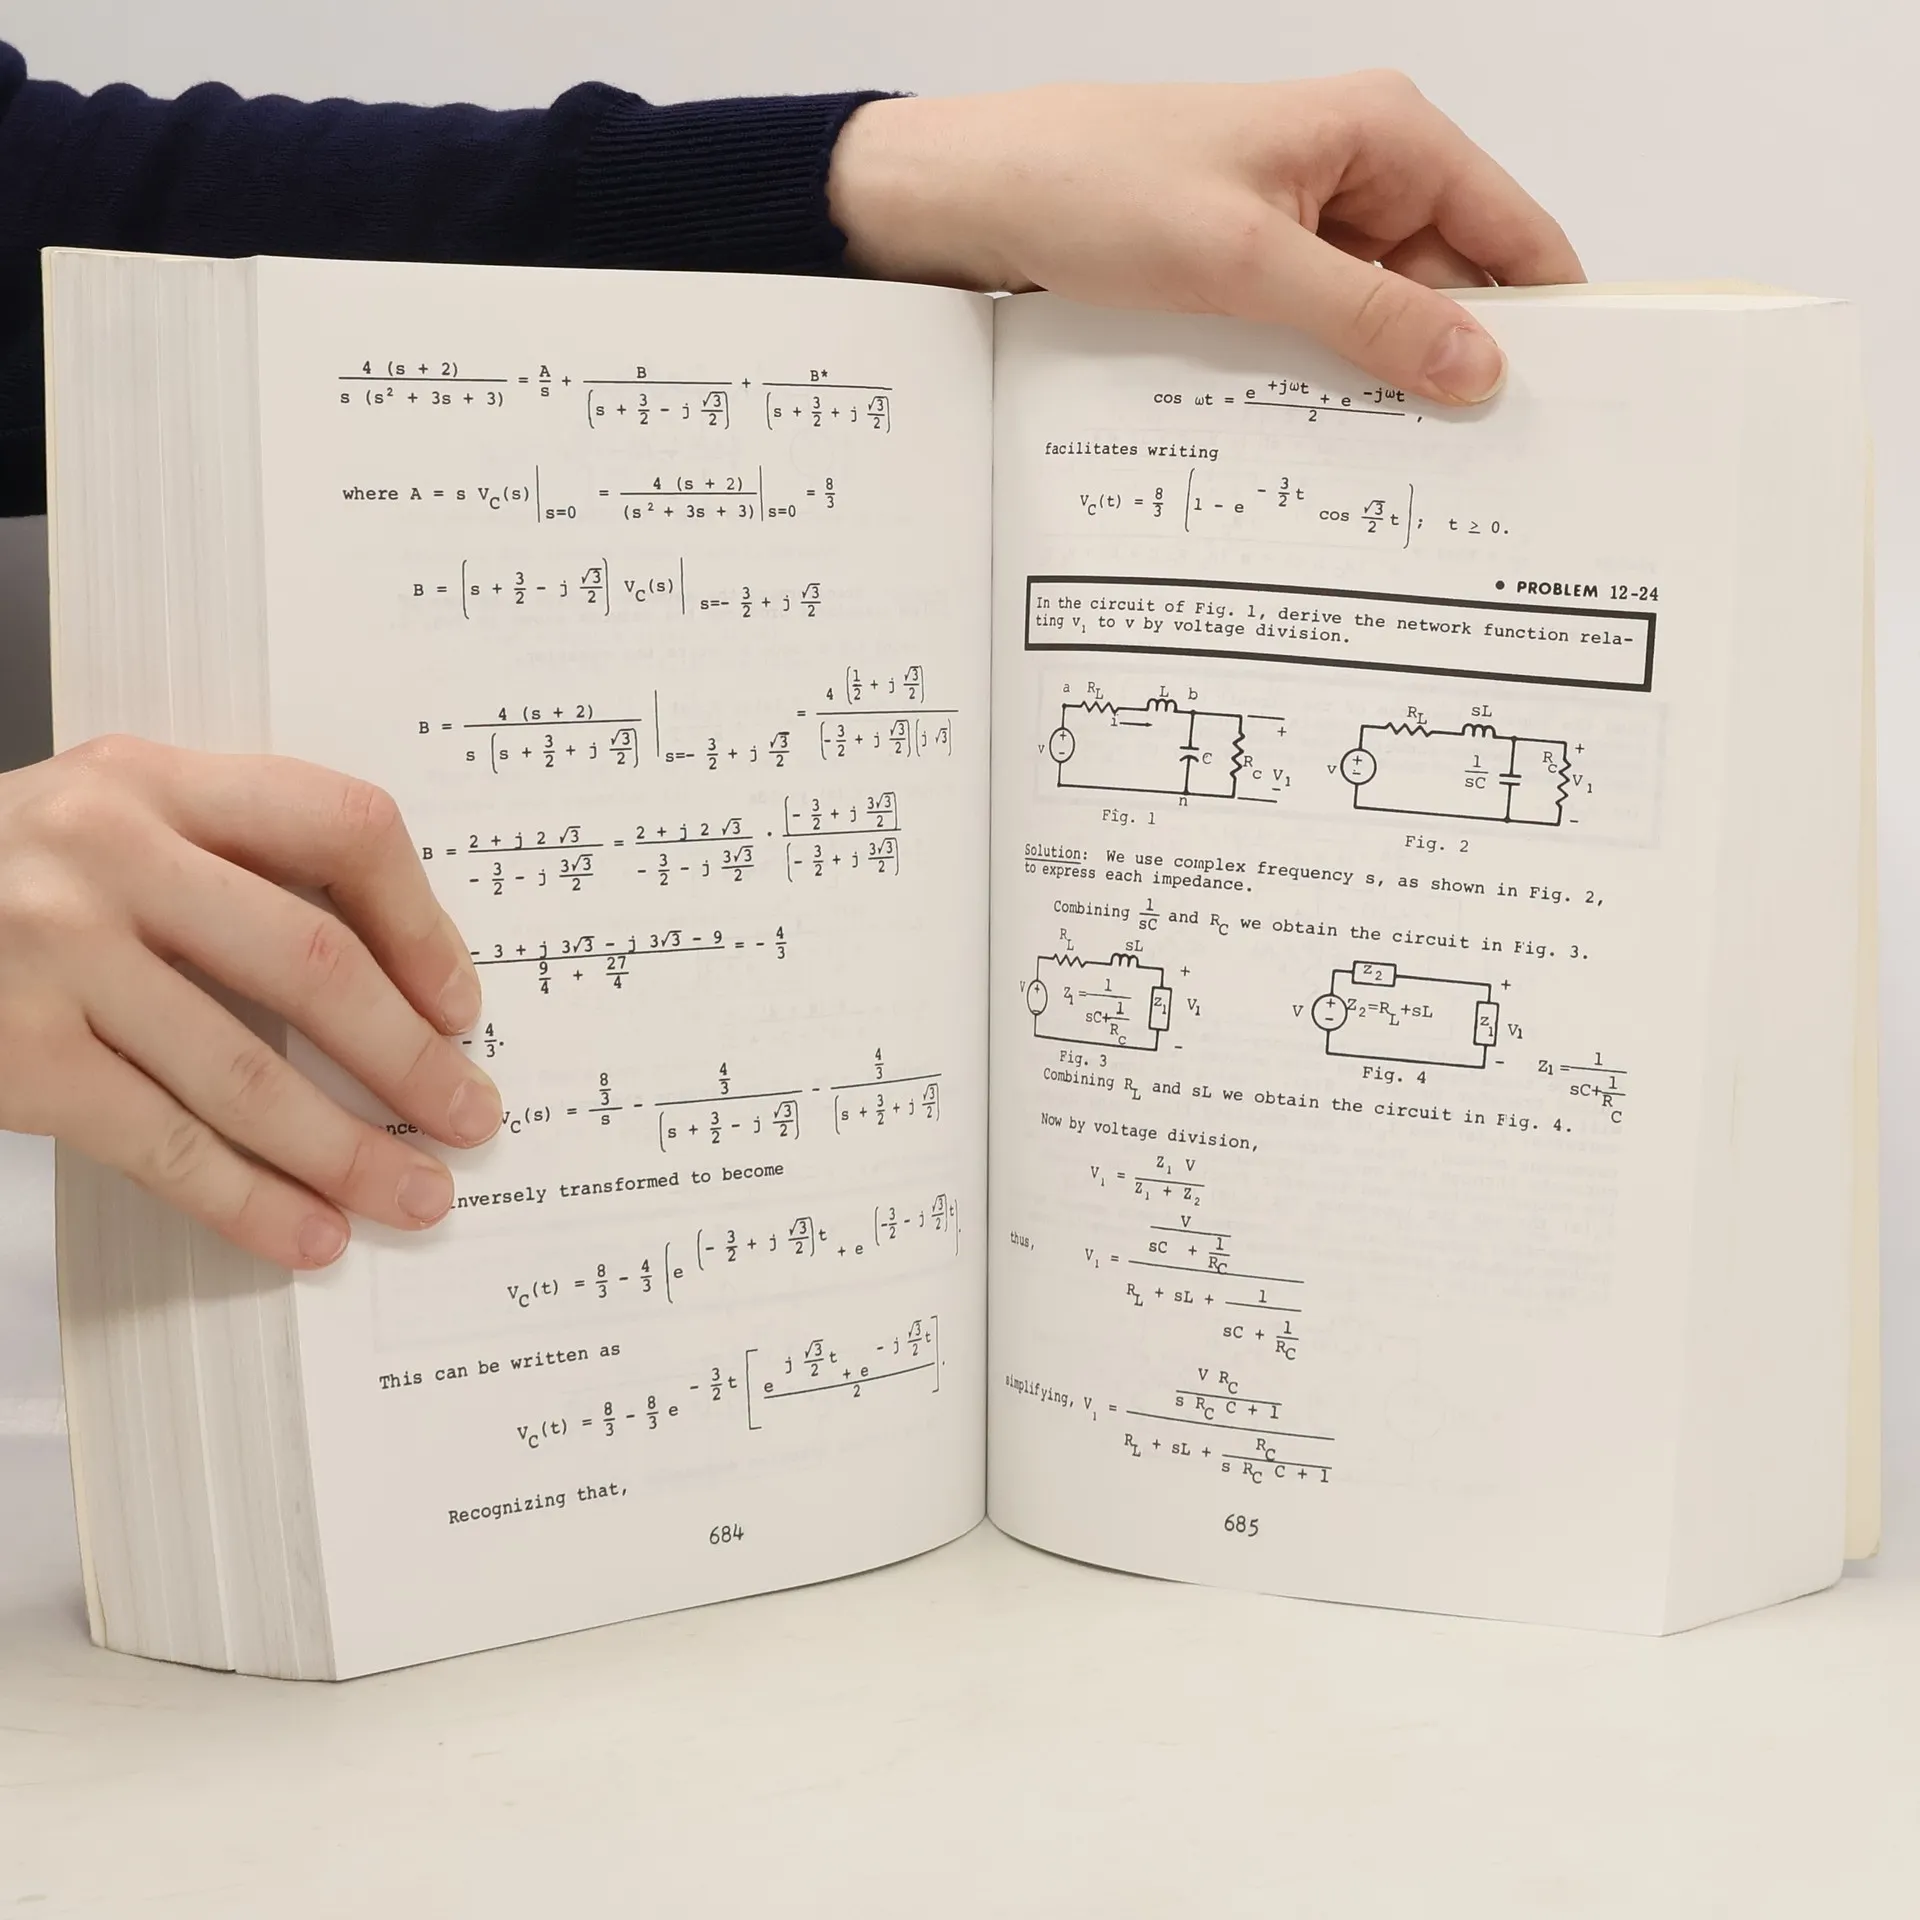 4 (s + 2) / s (s² + 3s + 3) = A/s + B / (s + 3/2 - j √3/2) + B* / (s + 3/2 + j √3/2)
where A = s V_C(s) |s=0 = 4 (s + 2) / (s² + 3s + 3) |s=0 = 8/3
B = (s + 3/2 - j √3/2) V_C(s) | s=- 3/2 + j √3/2
B = 4 (s + 2) / s (s + 3/2 + j √3/2) |s=- 3/2 + j √3/2 = 4 (1/2 + j √3/2) / (-3/2 + j √3/2)(j √3)
B = 2 + j 2 √3 / - 3/2 - j 3√3/2 = 2 + j 2 √3 / - 3/2 - j 3√3/2 · (- 3/2 + j 3√3/2) / (- 3/2 + j 3√3/2)
- 3 + j 3√3 - j 3√3 - 9 / 9/4 + 27/4 = - 4/3
- 4/3.
V_C(s) = 8/3 / s - 4/3 / (s + 3/2 - j √3/2) - 4/3 / (s + 3/2 + j √3/2)
nversely transformed to become
V_C(t) = 8/3 - 4/3 (e^(- 3/2 + j √3/2)t + e^(-3/2 - j √3/2)t).
This can be written as
V_C(t) = 8/3 - 8/3 e^- 3/2 t [e^j √3/2 t + e^- j √3/2 t / 2].
Recognizing that,
684
cos ωt = e^+jωt + e^-jωt / 2 ,
facilitates writing
V_C(t) = 8/3 (1 - e^- 3/2 t cos √3/2 t); t ≥ 0.
• PROBLEM 12-24
In the circuit of Fig. 1, derive the network function rela-
ting v₁ to v by voltage division.
a R_L L b
i
+
v + -
C R_C V₁
-
n
Fig. 1
R_L sL
v + -
1/sC R_C + V₁ -
Fig. 2
Solution: We use complex frequency s, as shown in Fig. 2,
to express each impedance.
Combining 1/sC and R_C we obtain the circuit in Fig. 3.
R_L sL
V + - Z₁ = 1 / sC + 1/R_C Z₁ + V₁ -
Fig. 3
Z₂
V + - Z₂=R_L+sL Z₁ + V₁ -
Z₁ = 1 / sC + 1/R_C
Fig. 4
Combining R_L and sL we obtain the circuit in Fig. 4.
Now by voltage division,
V₁ = Z₁ V / Z₁ + Z₂
thus, V₁ = V / sC + 1/R_C / R_L + sL + 1 / sC + 1/R_C
simplifying, V₁ = V R_C / s R_C C + 1 / R_L + sL + R_C / s R_C C + 1
685